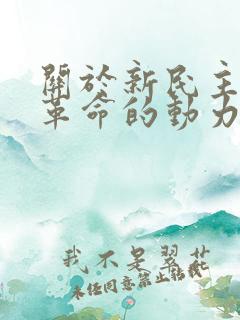 關於新民主
革命的動力
我不是翠花
未經同意禁止轉載